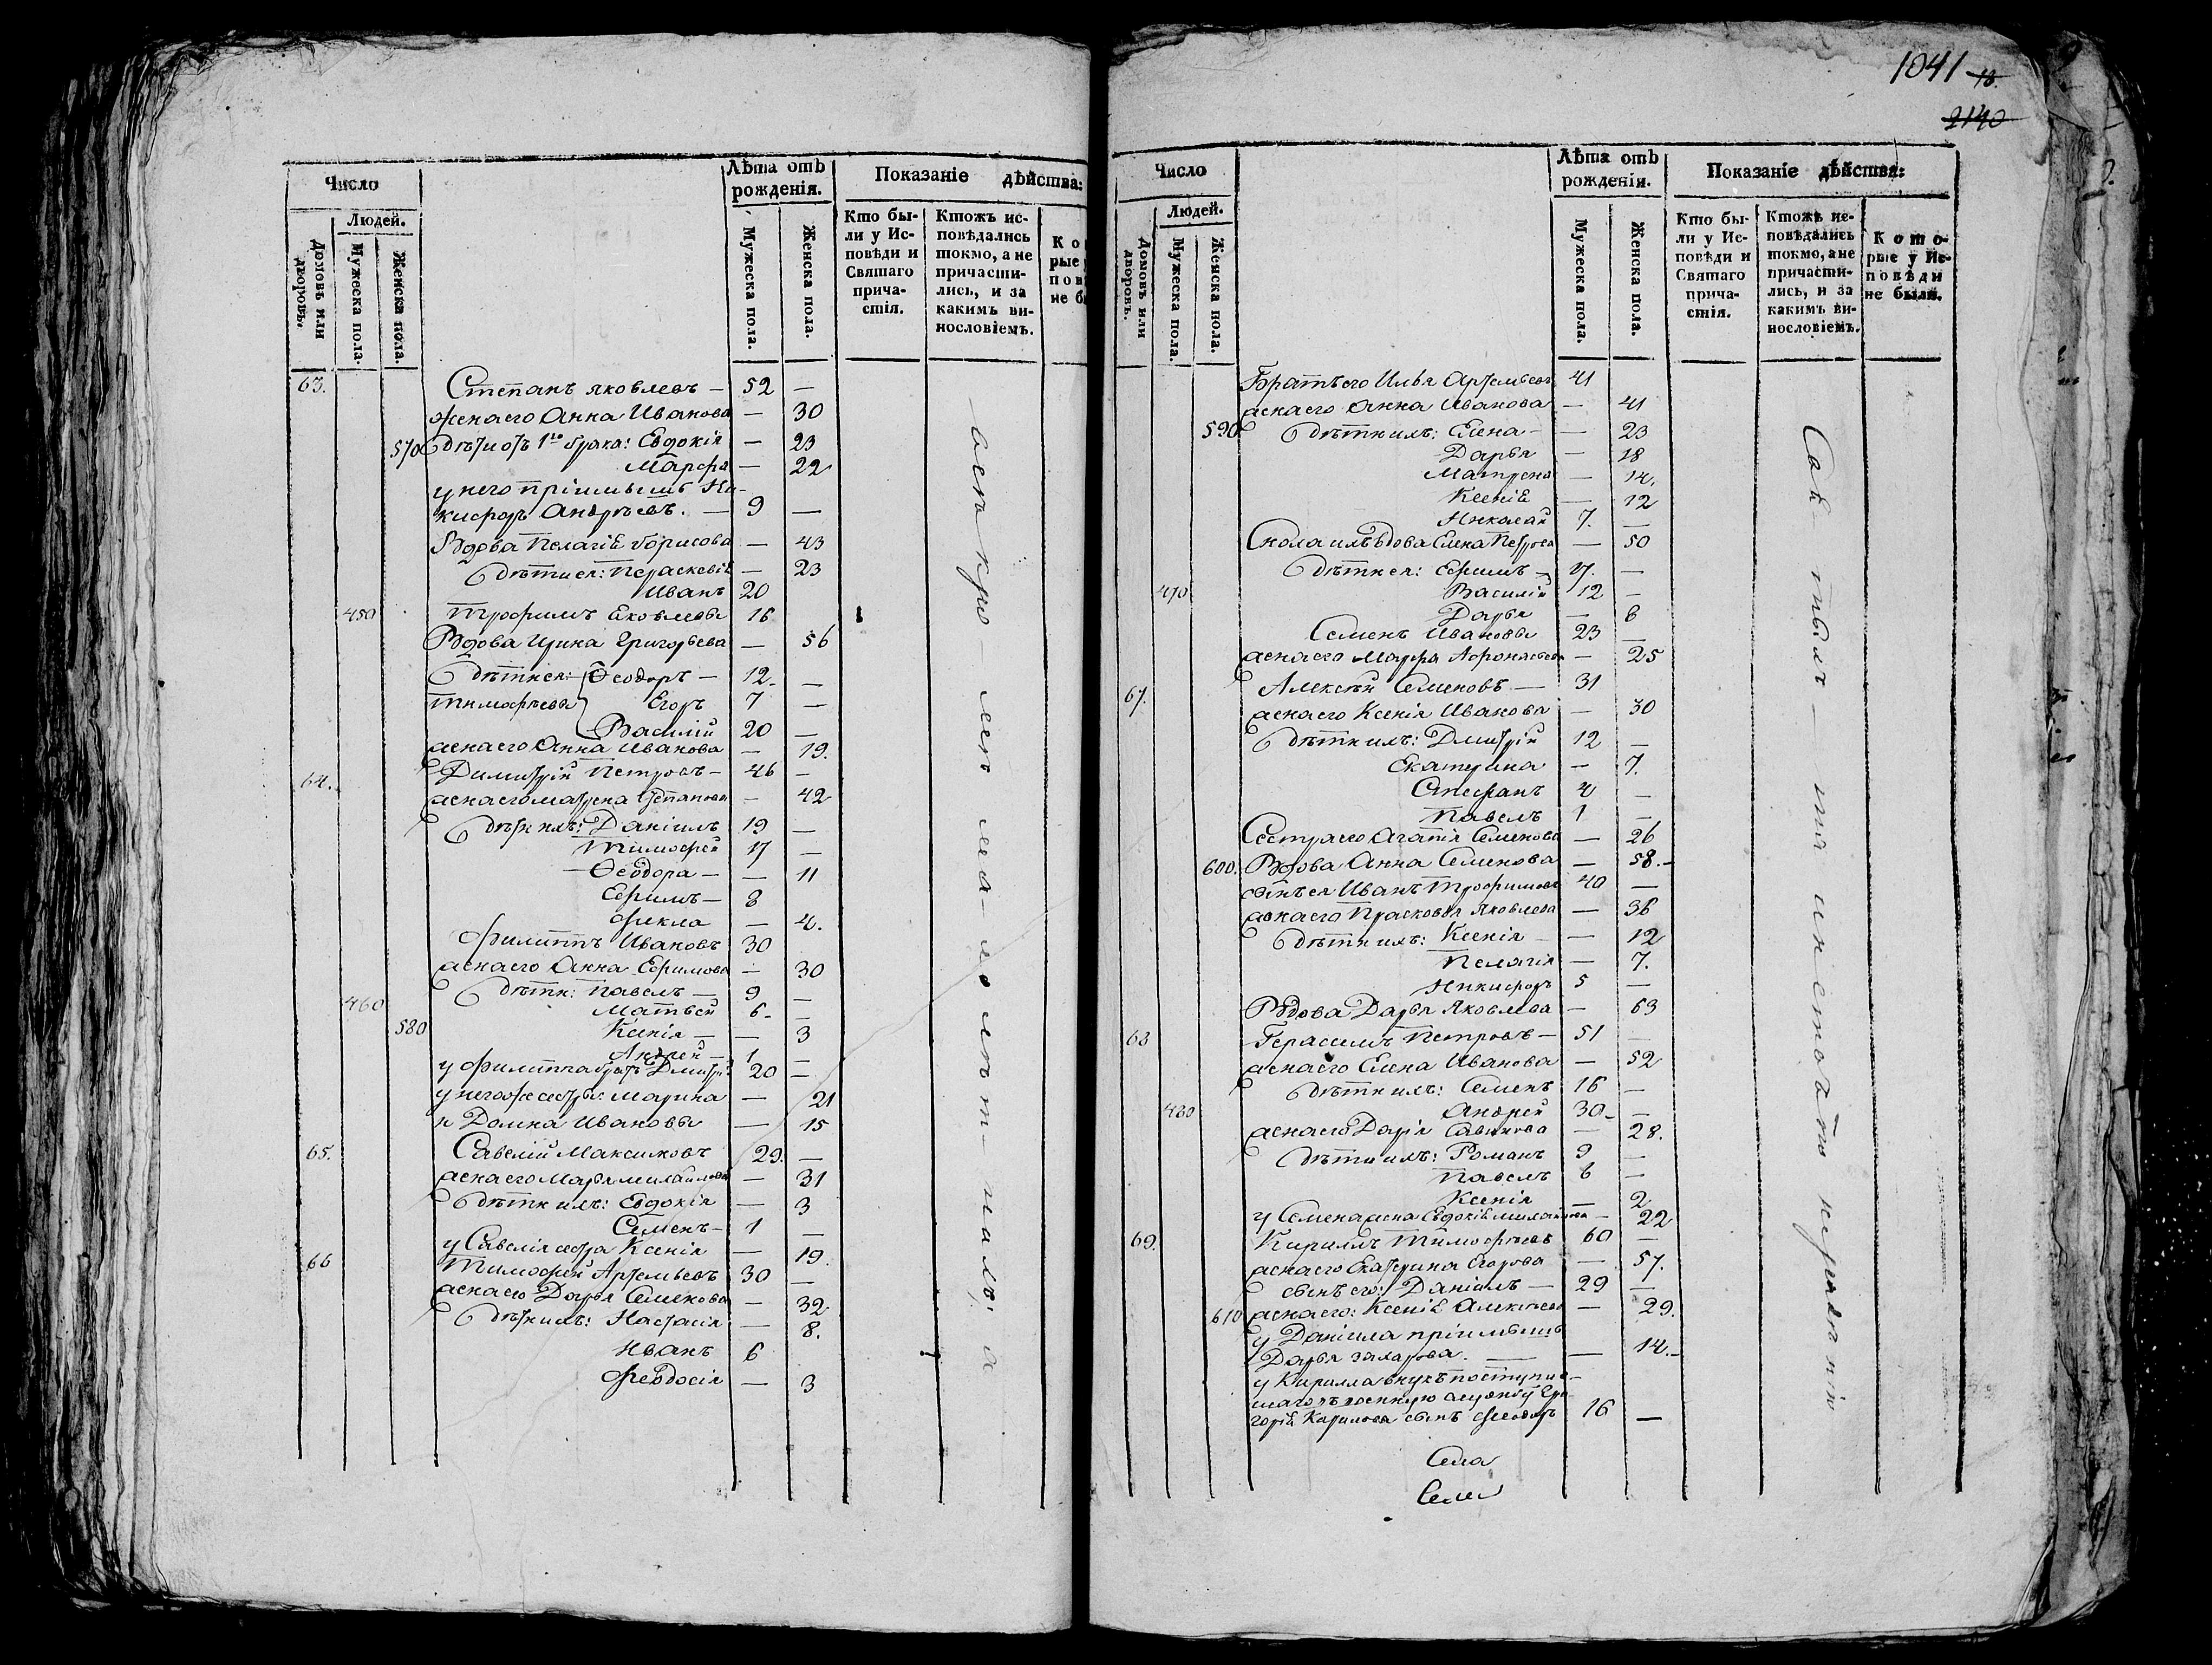 Число
Лѣта отъ рожденія.
Показаніе дѣйства:
Домовъ или дворовъ.
Людей.
Мужеска пола.
Женска пола.
Мужеска пола.
Женска пола.
Кто бы-
ли у Ис-
повѣди и
Святаго
прича-
стія.
Ктожъ ис-
повѣдались
токмо, а не
причасти-
лись, и за
какимъ ви-
нословіемъ.
63. Степанъ Яковлевъ — 52 —
жена его Анна Иванова — 30
570 дѣти отъ 1го брака: Евдокія — 23
Марфа — 22
у него пріимышъ Ни-
кифоръ Андреевъ. — 9 —
Вдова Пелагіѣ Борисова — 43
дѣти ея: Пераскевіѣ — 23
Иванъ 20
450 Трофимъ Яковлевъ 16
Вдова Ирина Григорьева — 56
дѣти ея: Ѳеодоръ — 12 —
Тимофѣевы Егоръ 7 —
Василій 20 —
жена его Анна Иванова — 19.
64. Димитрій Петровъ — 46 —
жена его Матрена Степанова — 42
дѣти ихъ: Даніилъ 19 —
Тимофей 17 —
Ѳеодора — — 11
Ефимъ — 8
Фекла — 4.
Филиппъ Ивановъ 30
жена его Анна Ефимова — 30
460 дѣти: Павелъ — 9 —
Матвей 6 —
580 Ксенія — — 3
Андрей — 1 —
у Филиппа братъ Дмитрій 20 —
у него же сестры Марина — 21
и Домна Ивановы — 15
65. Савелій Максимовъ 29. —
жена его Марья Михайлова — 31
дѣти ихъ: Евдокія — 3
Семенъ — 1 —
у Савелія сестра Ксенія — 19.
66 Тимофей Артемьевъ 30 —
жена его Дарья Семенова — 32
дѣти ихъ: Настасія — 8.
Иванъ 6
Феодосія — 3
1041
2140
Число
Лѣта отъ рожденія.
Показаніе дѣйства:
Домовъ или дворовъ.
Людей.
Мужеска пола.
Женска пола.
Мужеска пола.
Женска пола.
Кто бы-
ли у Ис-
повѣди и
Святаго
прича-
стія.
Ктожъ не-
повѣдались
токмо, а не
причасти-
лись, и за
какимъ ви-
нословіемъ.
Кото-
рые у Ис-
повѣди
не были.
Братъ его Илья Артемьевъ 41
жена его Анна Иванова — 41
590 дѣти ихъ: Елена — — 23
Дарья — 18
Матрена — 14.
Ксеніѣ — 12
Николай 7. —
Сноха ихъ вдова Елена Петрова — 50
дѣти ея: Ефимъ — 17. —
470 Василій 12 —
Дарья — 6
Семенъ Ивановъ 23 —
жена его Марфа Афонасьева — 25
67. Алексѣй Семеновъ — 31
жена его Ксенія Иванова — 30
дѣти ихъ: Дмитрій 12 —
Екатерина — 7.
Стефанъ 4 —
Павелъ 1 —
Сестра его Агапія Семенова — 26
600. Вдова Анна Семенова — 58. —
сынъ ея Иванъ Трофимовъ 40 —
жена его Прасковья Яковлева — 36
дѣти ихъ: Ксенія — 12
Пелагія — 7.
Никифоръ 5 —
Вдова Дарья Яковлева — 63
68 Герасимъ Петровъ — 51 —
жена его Елена Иванова — 52
дѣти ихъ: Семенъ 16 —
480 Андрей 30 —
жена его Дарія Савинова — 28.
дѣти ихъ: Романъ 9 —
Павелъ 6 —
Ксенія — 2
у Семена жена Евдокіѣ Михайлова — 22
69. Кириллъ Тимофѣевъ 60 —
жена его Екатерина Егорова — 57.
сынъ его: Даніилъ — 29 —
610 жена его: Ксеніѣ Алексѣева — 29.
у Даніила пріимышъ
Дарья Захарова. — — 14. —
у Кирилла внукъ поступив-
шаго въ военную службу Гри-
горія Кирилова сынъ Феодоръ 16 —
Села
Семе